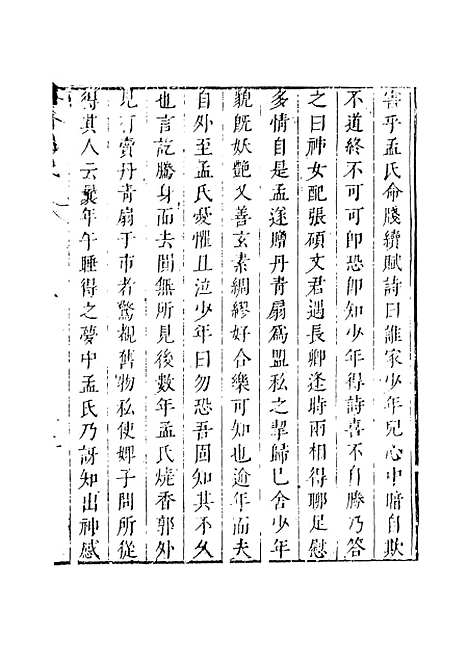 害乎孟氏命牋續賦詩曰誰家少年兒心中暗自欺
不道終不可可即恐郎知少年得詩喜不自勝乃答
之曰神女配張碩文君遇長卿逢時雨相得聊足慰
多情自是孟遂贈丹青扇爲盟私之挈歸已舍少年
貌既妖艶又善玄素綢繆好合樂可知也逾年而夫
自外至孟氏憂懼且泣少年曰勿恐吾固知其不久
也言訖騰身而去闃無所見後數年孟氏燒香郭外
見有賣丹青扇于市者驚覩舊物私使婢子問所從
得其人云曩年午睡得之夢中孟氏乃訝知出神感